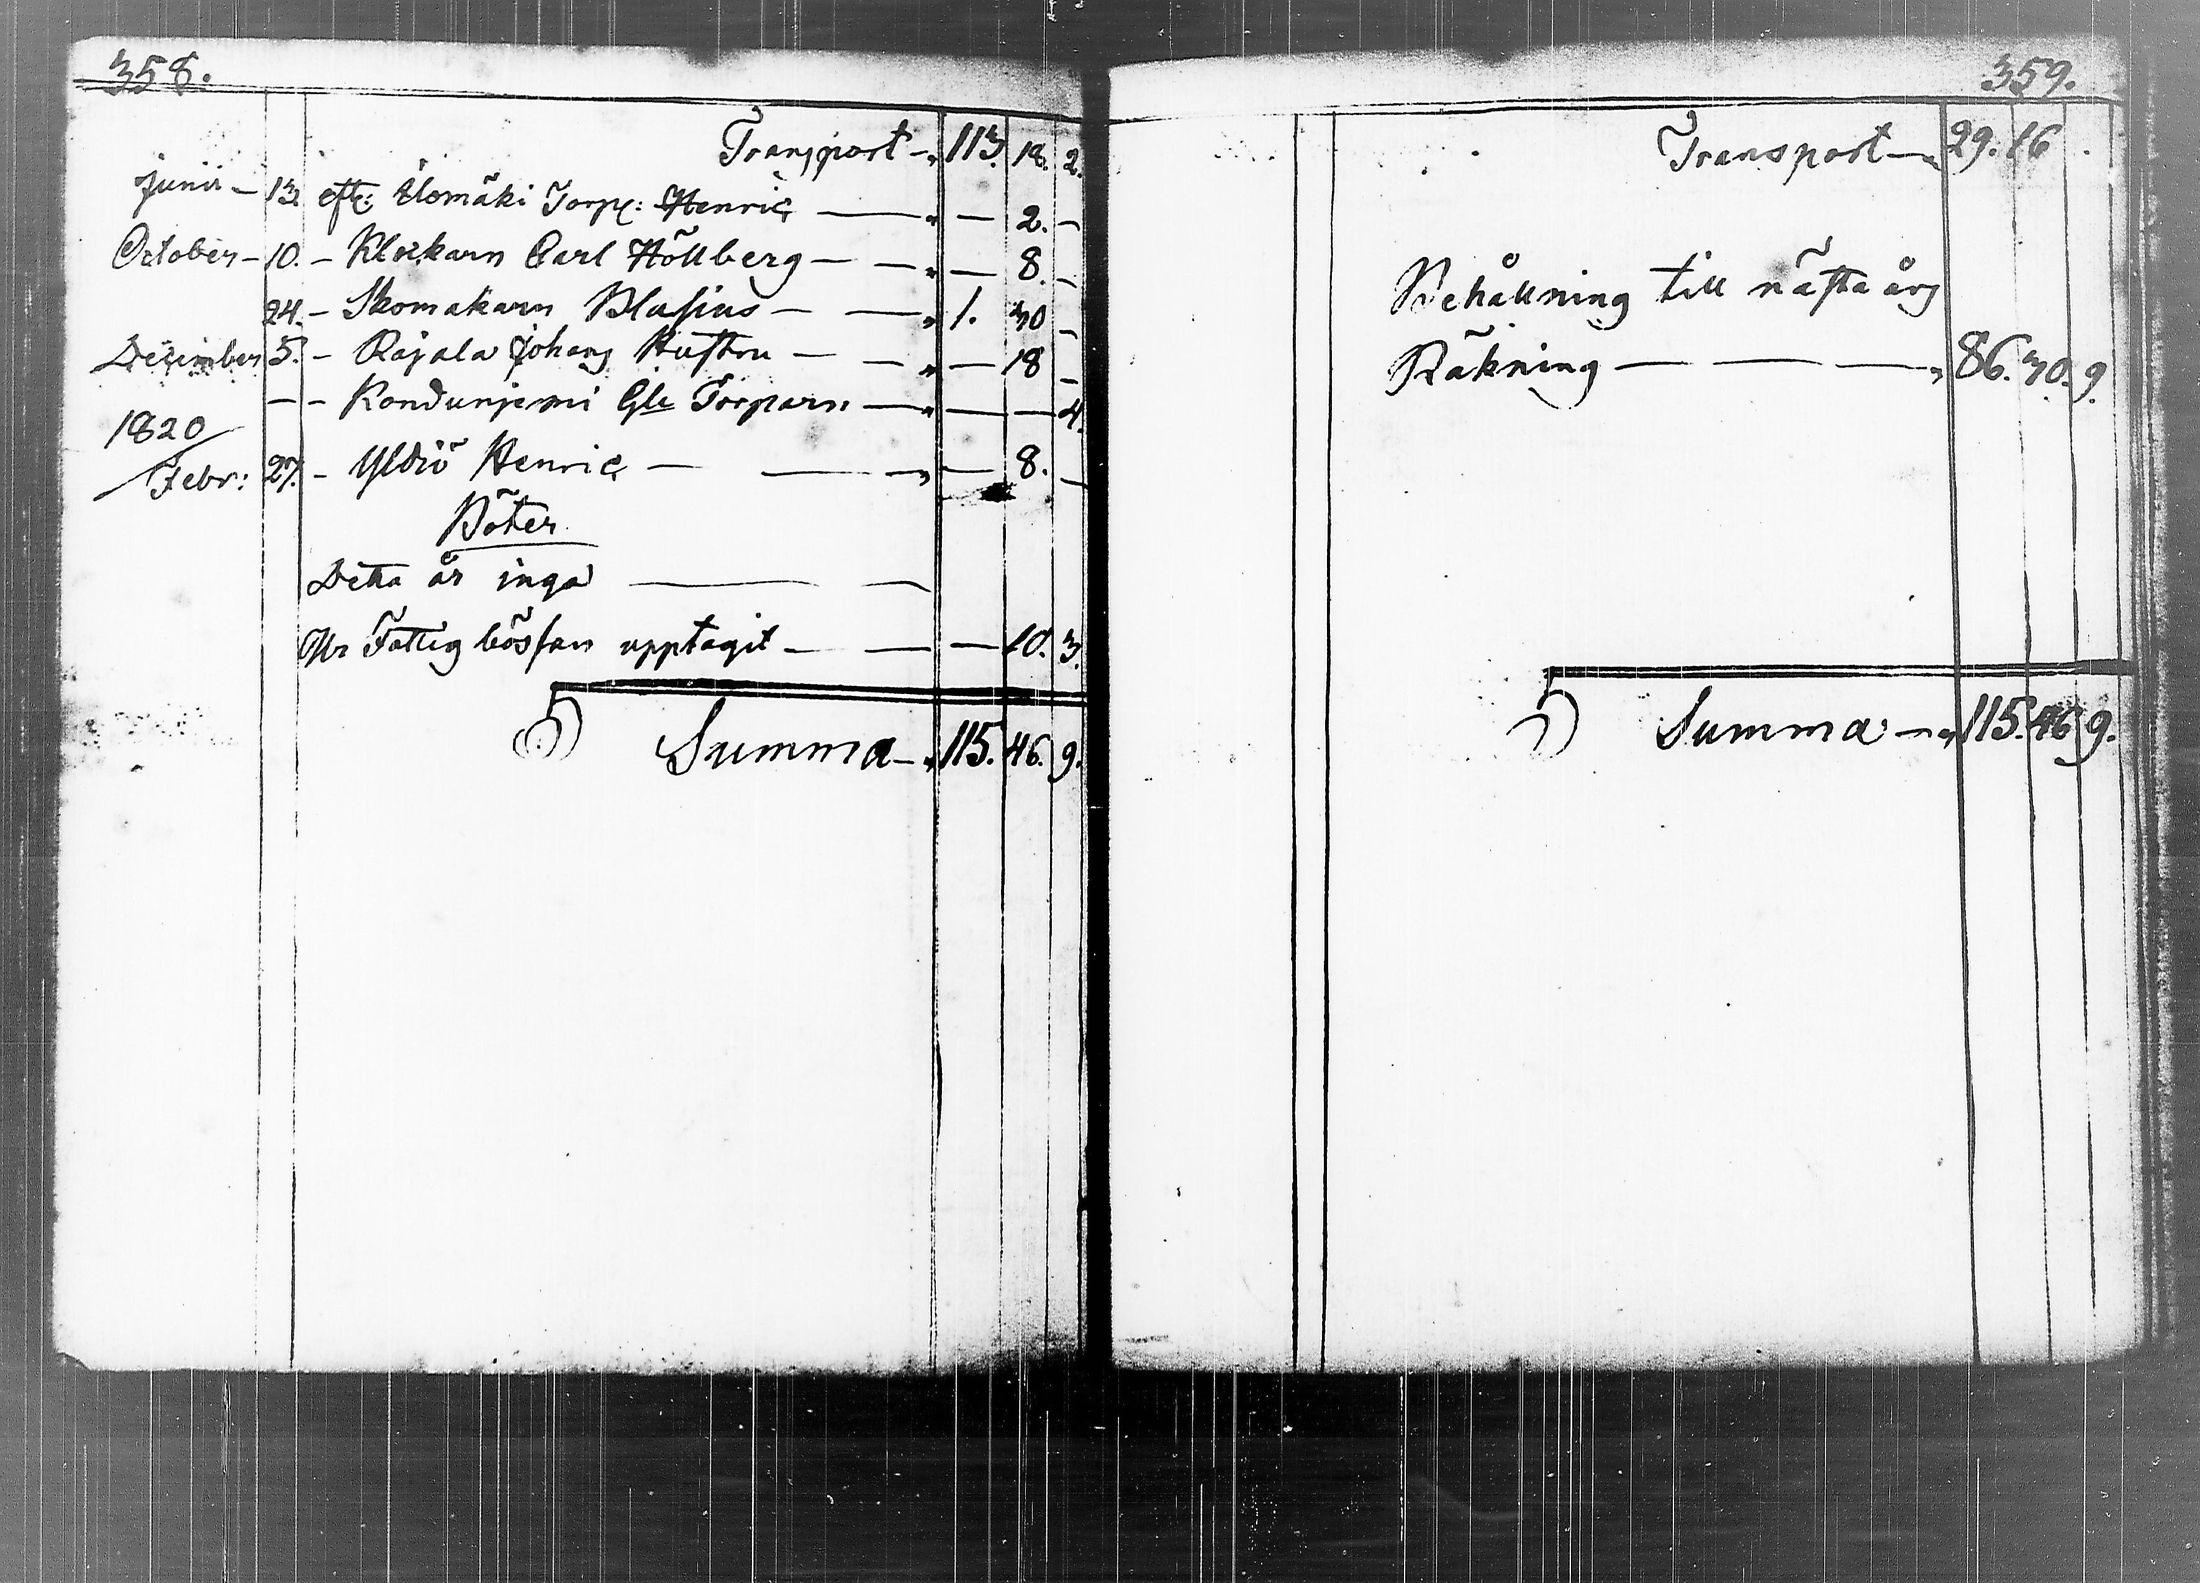 358.
Transport — 113. 18. 2.
Junii — 13. eft: Ilomäki Torp: Henric — — 2. —
October — 10. — Klockarn Carl Höllberg — — 8. —
24. — Skomakarn Blasius — 1. 30 —
December 5. — Rajala Johans Hustru — — 18 —
— — Gle Torparn — — — 4.
1820
Febr: 27. — Yldiö Henric — — 8. —
Böter
Detta år inga — —
Ur Fattig bössan upptagit — — 10. 3.
Summa — 115. 46. 9.
359.
Transport — 29. 16.
Behållning till nästa års
Räkning — — — 86. 30. 9.
Summa — 115. 46 9.